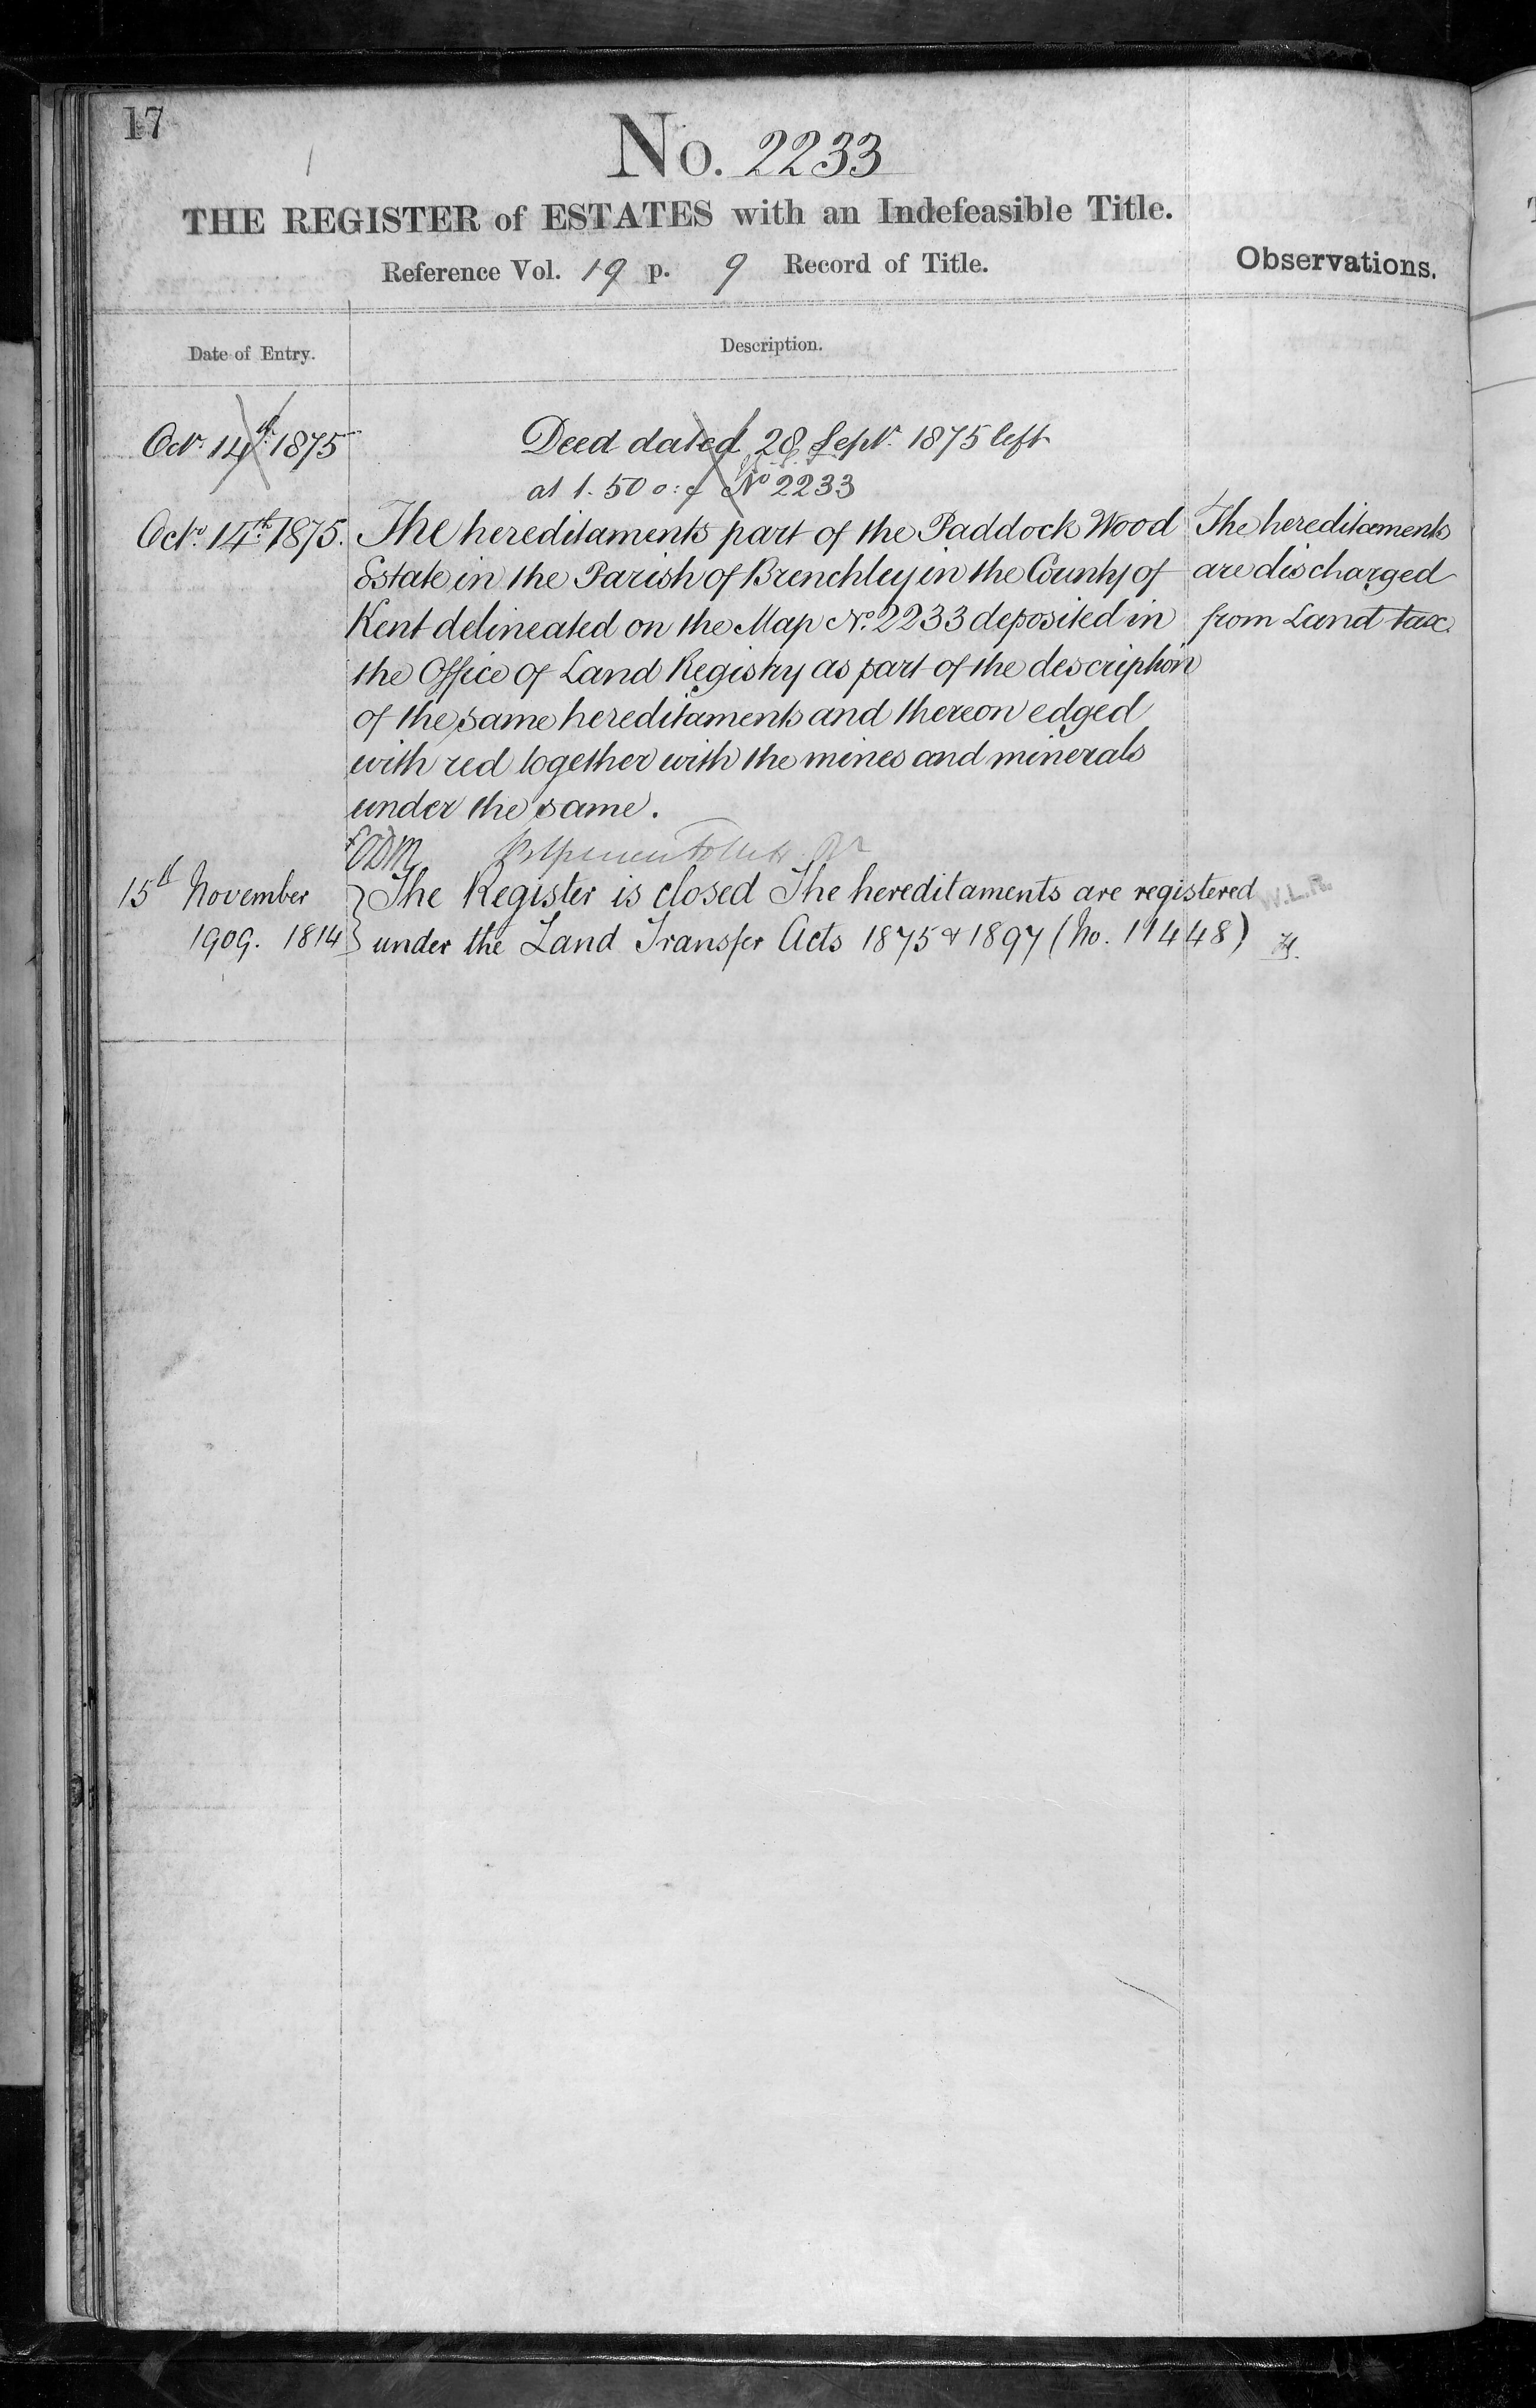 17
No. 2233
THE REGISTER of ESTATES with an Indefeasible Title.
Reference Vol. 19 p. 9 Record of Title.
Observations.
Date of Entry.
Description.
Octr. 14th 1875
Deed dated 28 Septr. 1875 left
at 1.50 o:c No 2233
Octr. 14th 1875.
The hereditaments part of the Paddock Wood
Estate in the Parish of Brenchley in the County of
Kent delineated on the Map No. 2233 deposited in
the Office of Land Registry as part of the description
of the same hereditaments and thereon edged
with red together with the mines and minerals
under the same.
The hereditaments
are discharged
from Land tax.
15th November
1909. 1814
The Register is closed The hereditaments are registered
under the Land Transfer Acts 1875 & 1897 (No. 11448)
W.L.R.